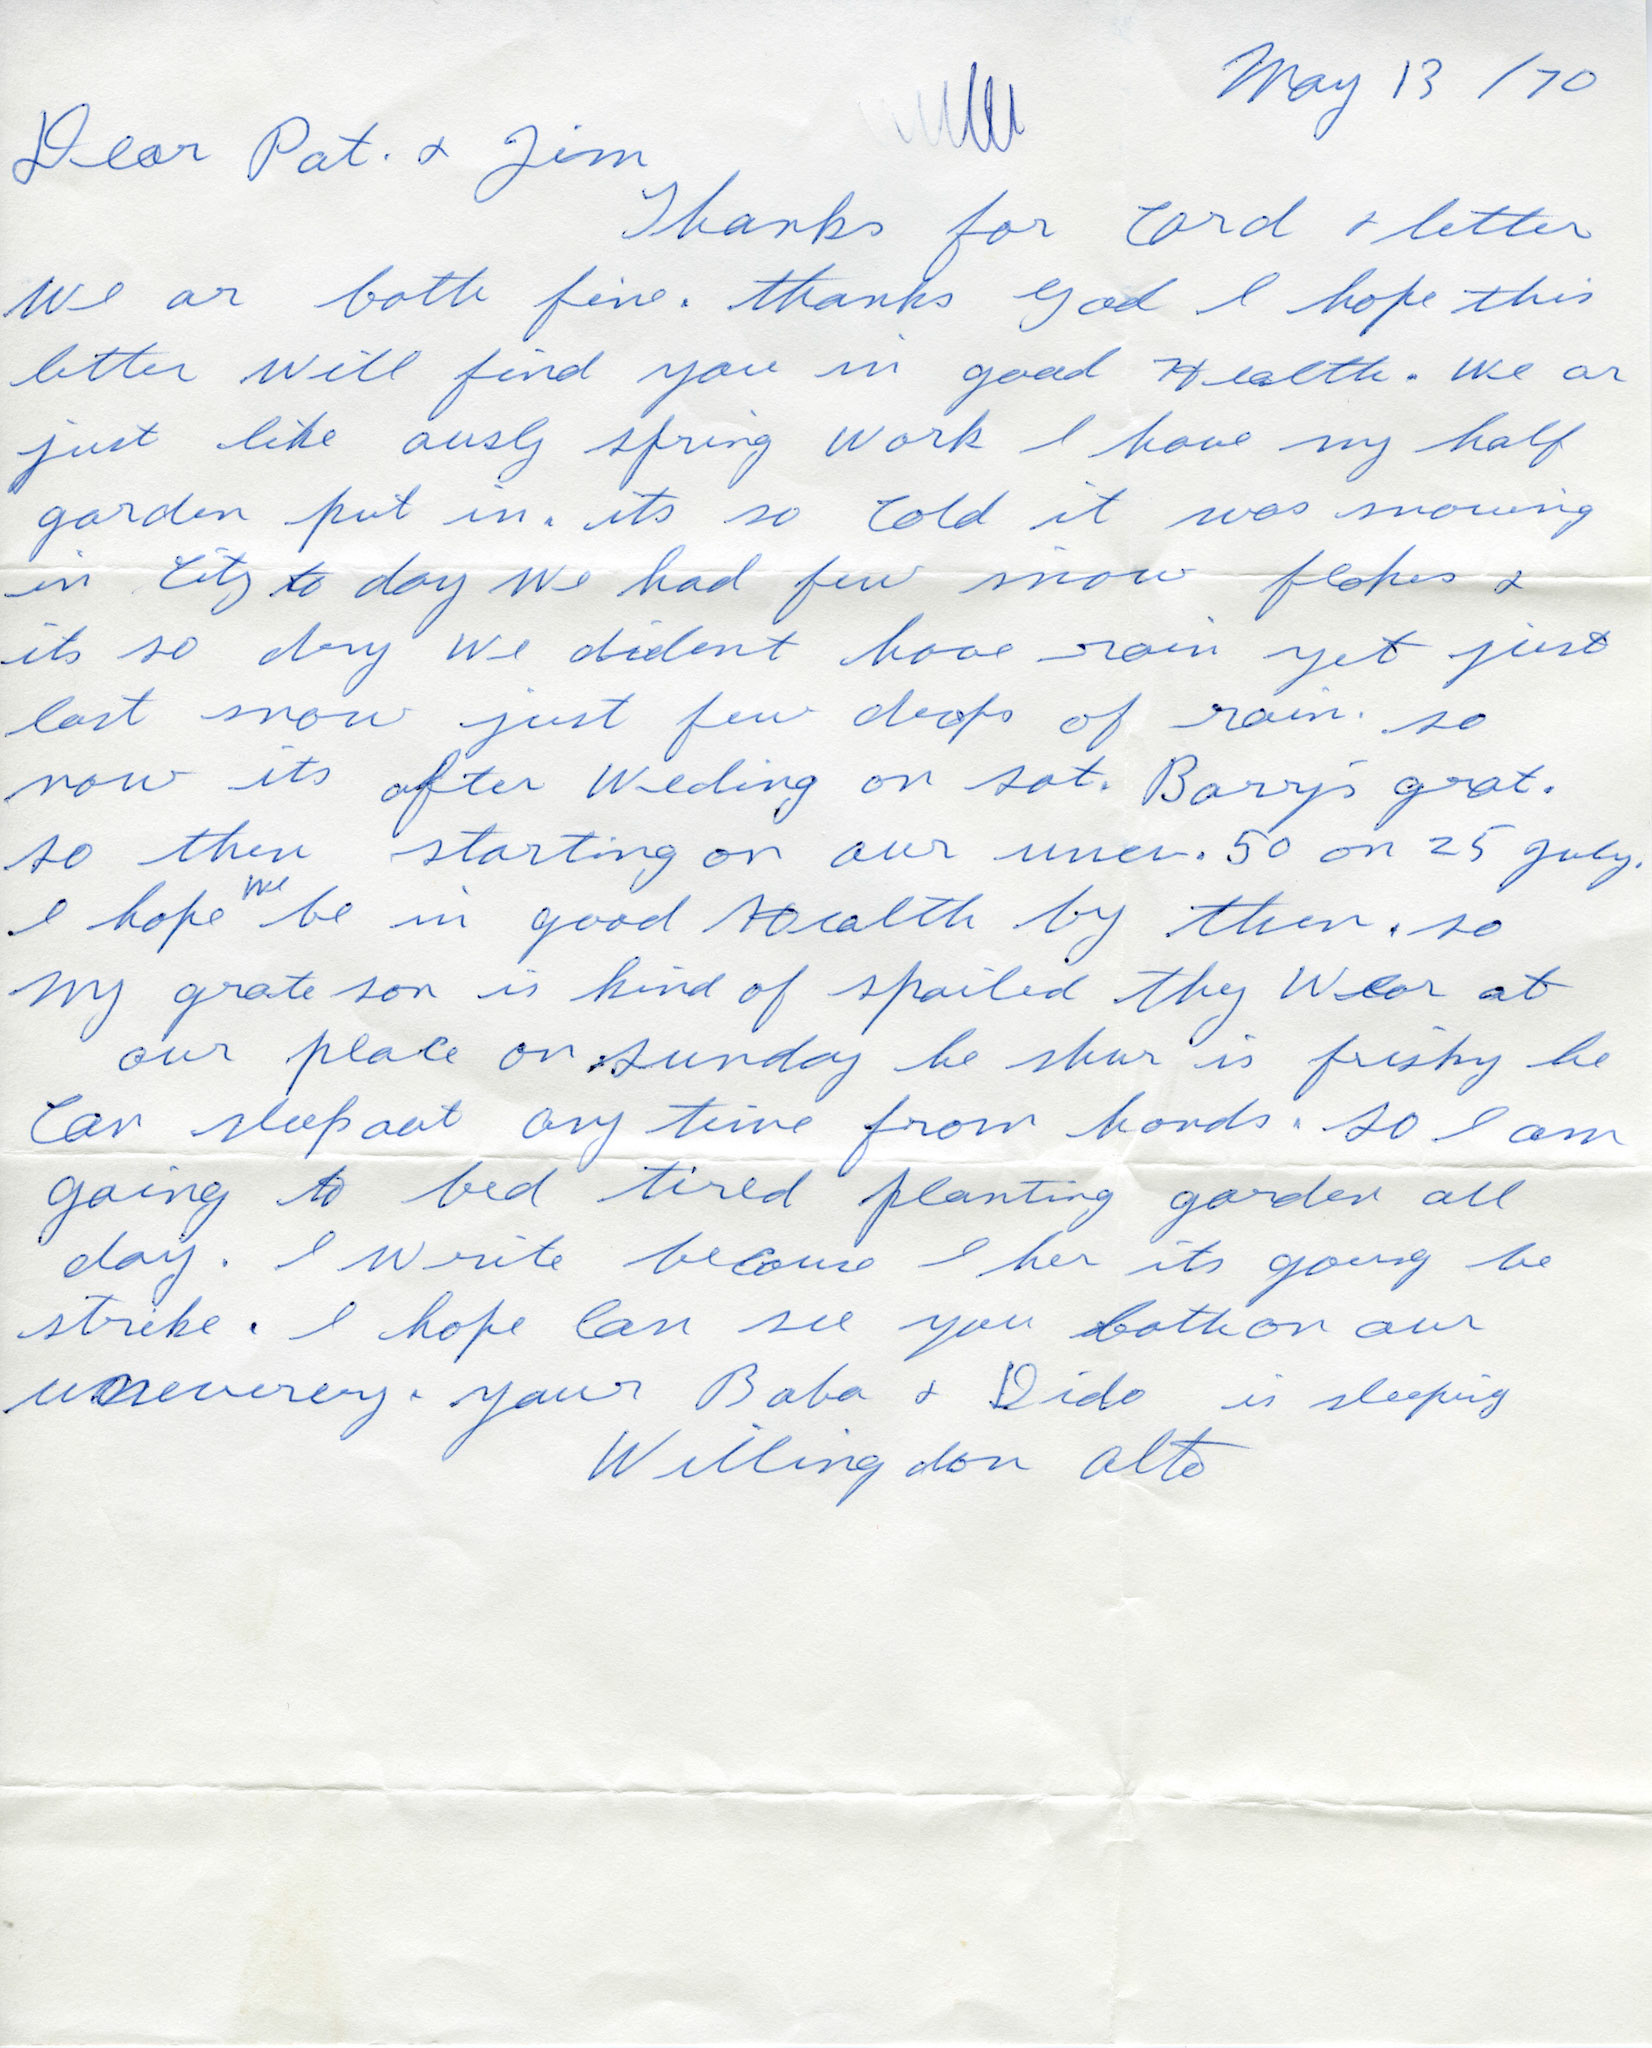 May 13 /70
Dear Pat. & Jim
Thanks for Card & letter
We ar both fine. thanks God I hope this
letter Will find you in good Health. We ar
just like ausly spring Work I have my half
garden put in. its so Cold it was snowing
in City to day We had few snow flakes &
its so dry We dident have rain yet just
last snow just few drops of rain. so
now its after Weding on sat. Barrys grat.
so then starting on our unev. 50 on 25 july.
I hope We be in good Health by then. so
My grate son is kind of spoiled they Wear at
our place on sunday he shur is frisky he
Can sleep out any time from hands. so I am
going to bed tired planting garden all
day. I Write because I her its going be
strike. I hope Can see you both on our
your Baba & Dido is sleeping
Willingdon Alta